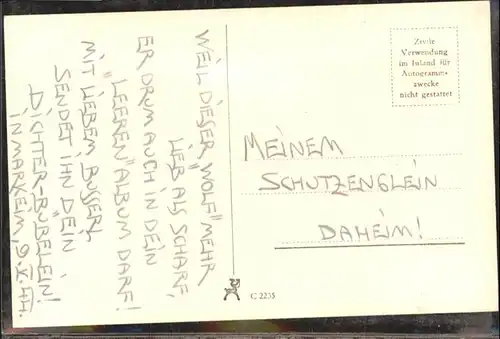 WEIL DIESER „WOLF” MEHR
LIEB ALS SCHARF,
ER DRUM AUCH IN DEIN
„LEEREN” ALBUM DARF!
MIT LIEBEM BUSSERL
SENDET IHN DEIN
DICHTER-BÜBELEIN!
IN MARKEIM, 9.V.44.
Zivile
Verwendung
im Inland für
Autogramm-
zwecke
nicht gestattet
MEINEM
SCHUTZENGLEIN
DAHEIM!
C 2235